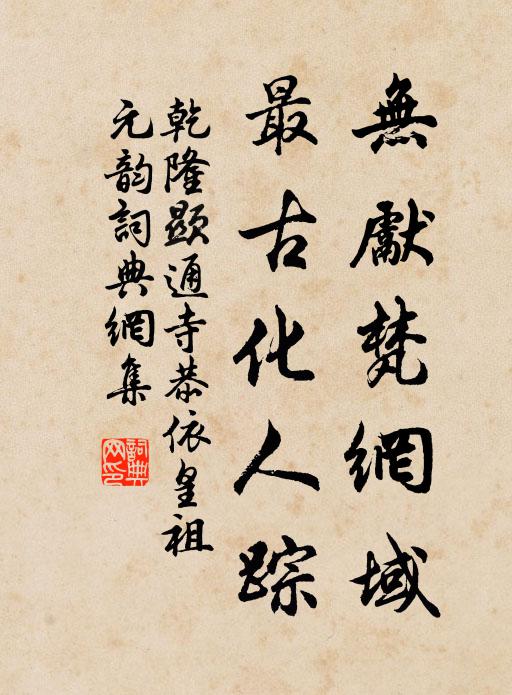 無獻梵網域
最古化人踪
乾隆顯通寺恭依皇祖
元韵詞典網集
詞典網印